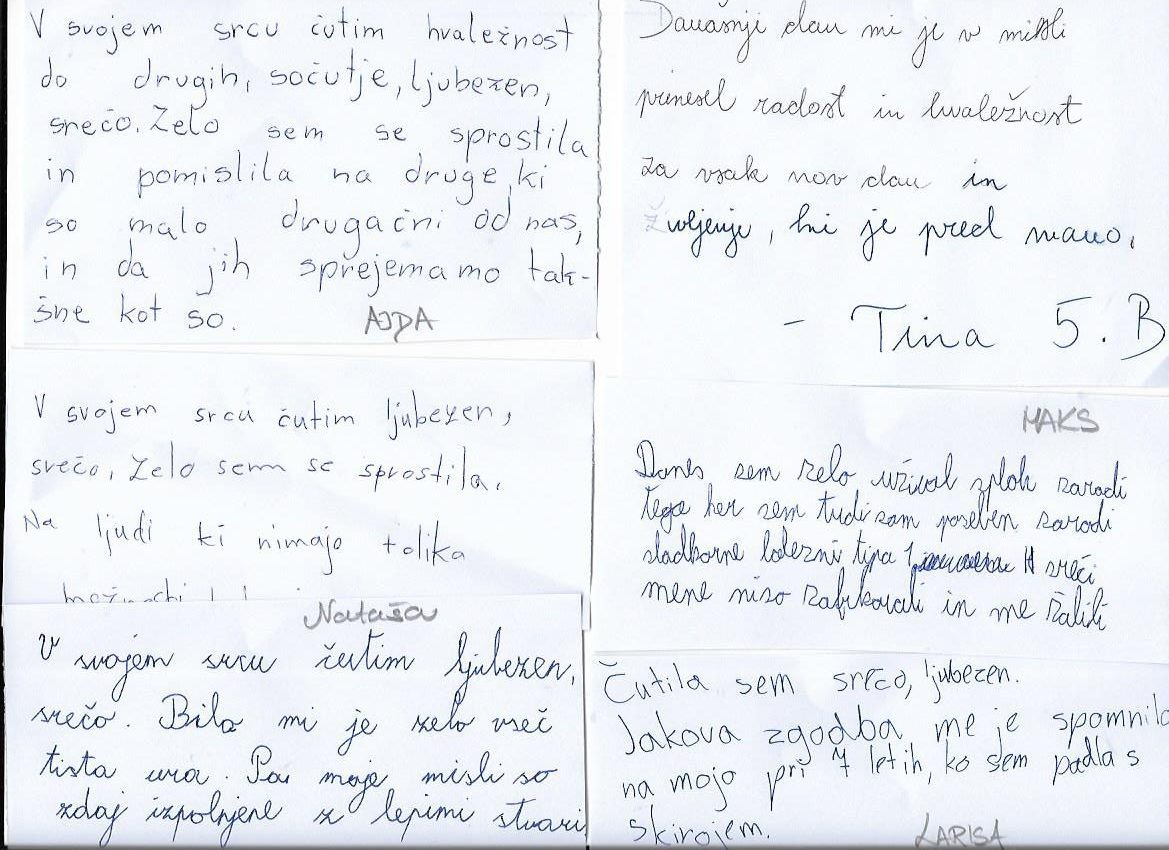 V svojem srcu čutim hvaležnost
do drugih, sočutje, ljubezen,
srečo. Zelo sem se sprostila
in pomislila na druge, ki
so malo drugačni od nas,
in da jih sprejemamo tak-
šne kot so. AJDA
V svojem srcu čutim ljubezen,
srečo, Zelo sem se sprostila.
Na ljudi ki nimajo tolika
Nataša
V svojem srcu čutim ljubezen,
srečo. Bila mi je zelo všeč
tista ura. Pa moje misli so
zdaj izpolnjene z lepimi stvari
Današnji dan mi je v misli
prinesel radost in hvaležnost
za vsak nov dan in
življenje, ki je pred mano.
- Tina 5. B
MAKS
Danes sem zelo užival sploh zaradi
tega ker sem tudi sam poseben zaradi
sladkorne bolezni tipa 1 H sreči
mene niso zafrkovali in me žalili
Čutila sem srečo, ljubezen.
Jakova zgodba me je spomnila
na mojo pri 7 letih, ko sem padla s
skirojem. LARISA